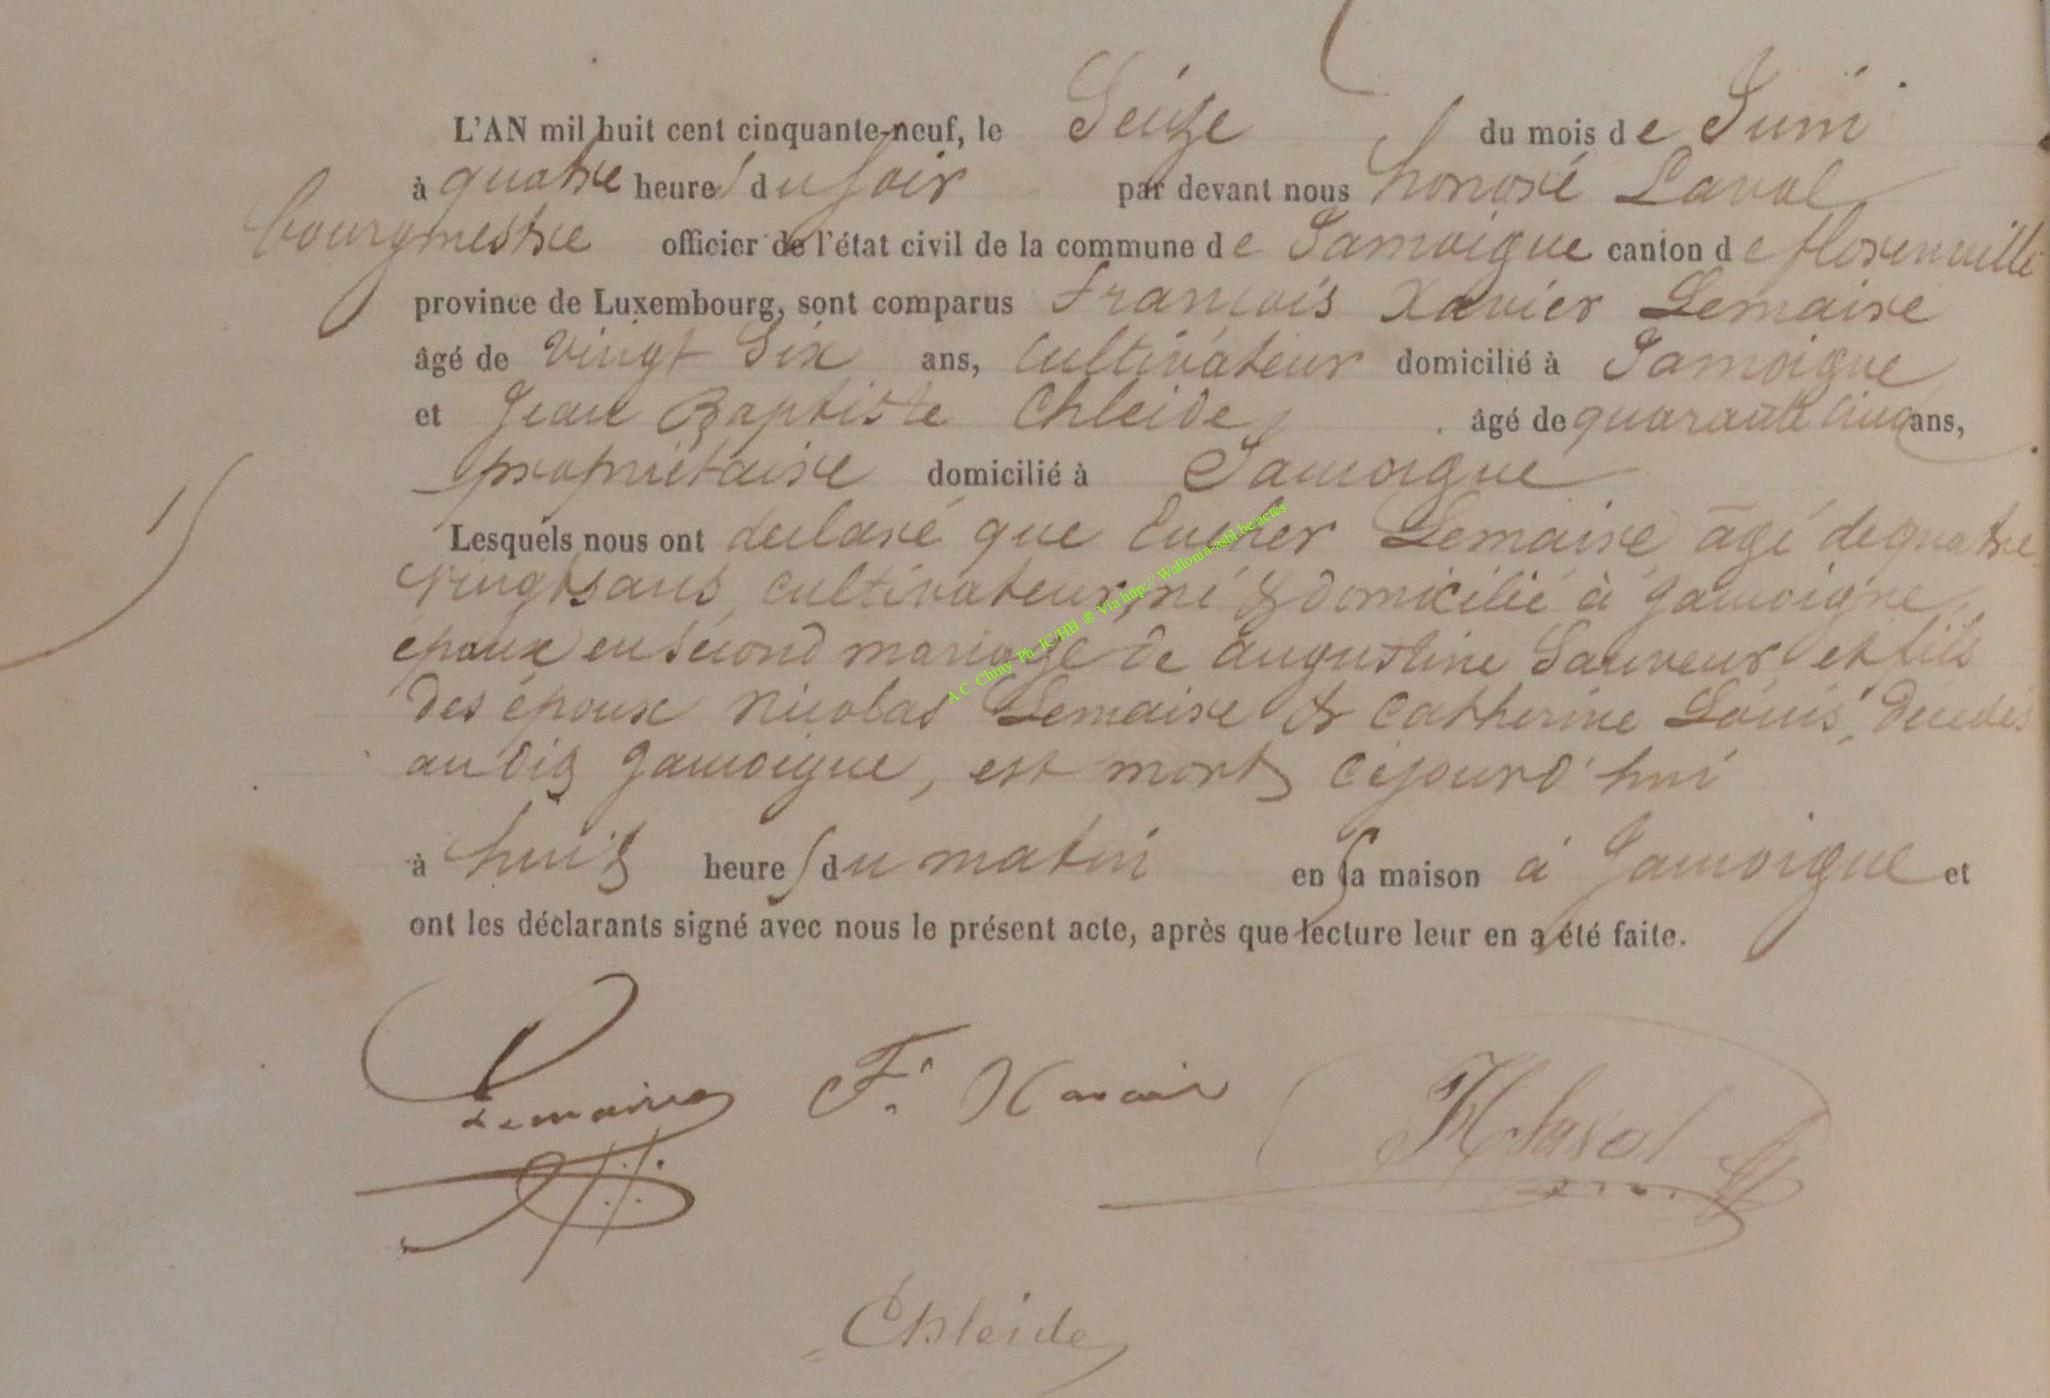 L'AN mil huit cent cinquante-neuf, le Seize du mois de Juin
à quatre heures du soir par devant nous honoré Laval
bourgmestre officier de l'état civil de la commune de Jamoigne canton de florenville
province de Luxembourg, sont comparus François Xavier Lemaire
âgé de vingt Six ans, cultivateur domicilié à Jamoigne
et Jean Baptiste Chleide, âgé de quarante cinq ans,
propriétaire domicilié à Jamoigne
Lesquels nous ont declaré que Eucher Lemaire, agé de quatre
vingts ans, cultivateur, né & domicilié à Jamoigne,
époux en second mariage de augustine Sauveur, et fils
des époux Nicolas Lemaire & Catherine Louis, décédés
au dit Jamoigne, est mort cejourd'hui
à huit heures du matin en sa maison à Jamoigne et
ont les déclarants signé avec nous le présent acte, après que lecture leur en a été faite.
Lemaire F. Xavair HLaval
Chleide
A.C. Chiny Ph. JC/HB ® Via http:// Wallonia-asbl.be/actes